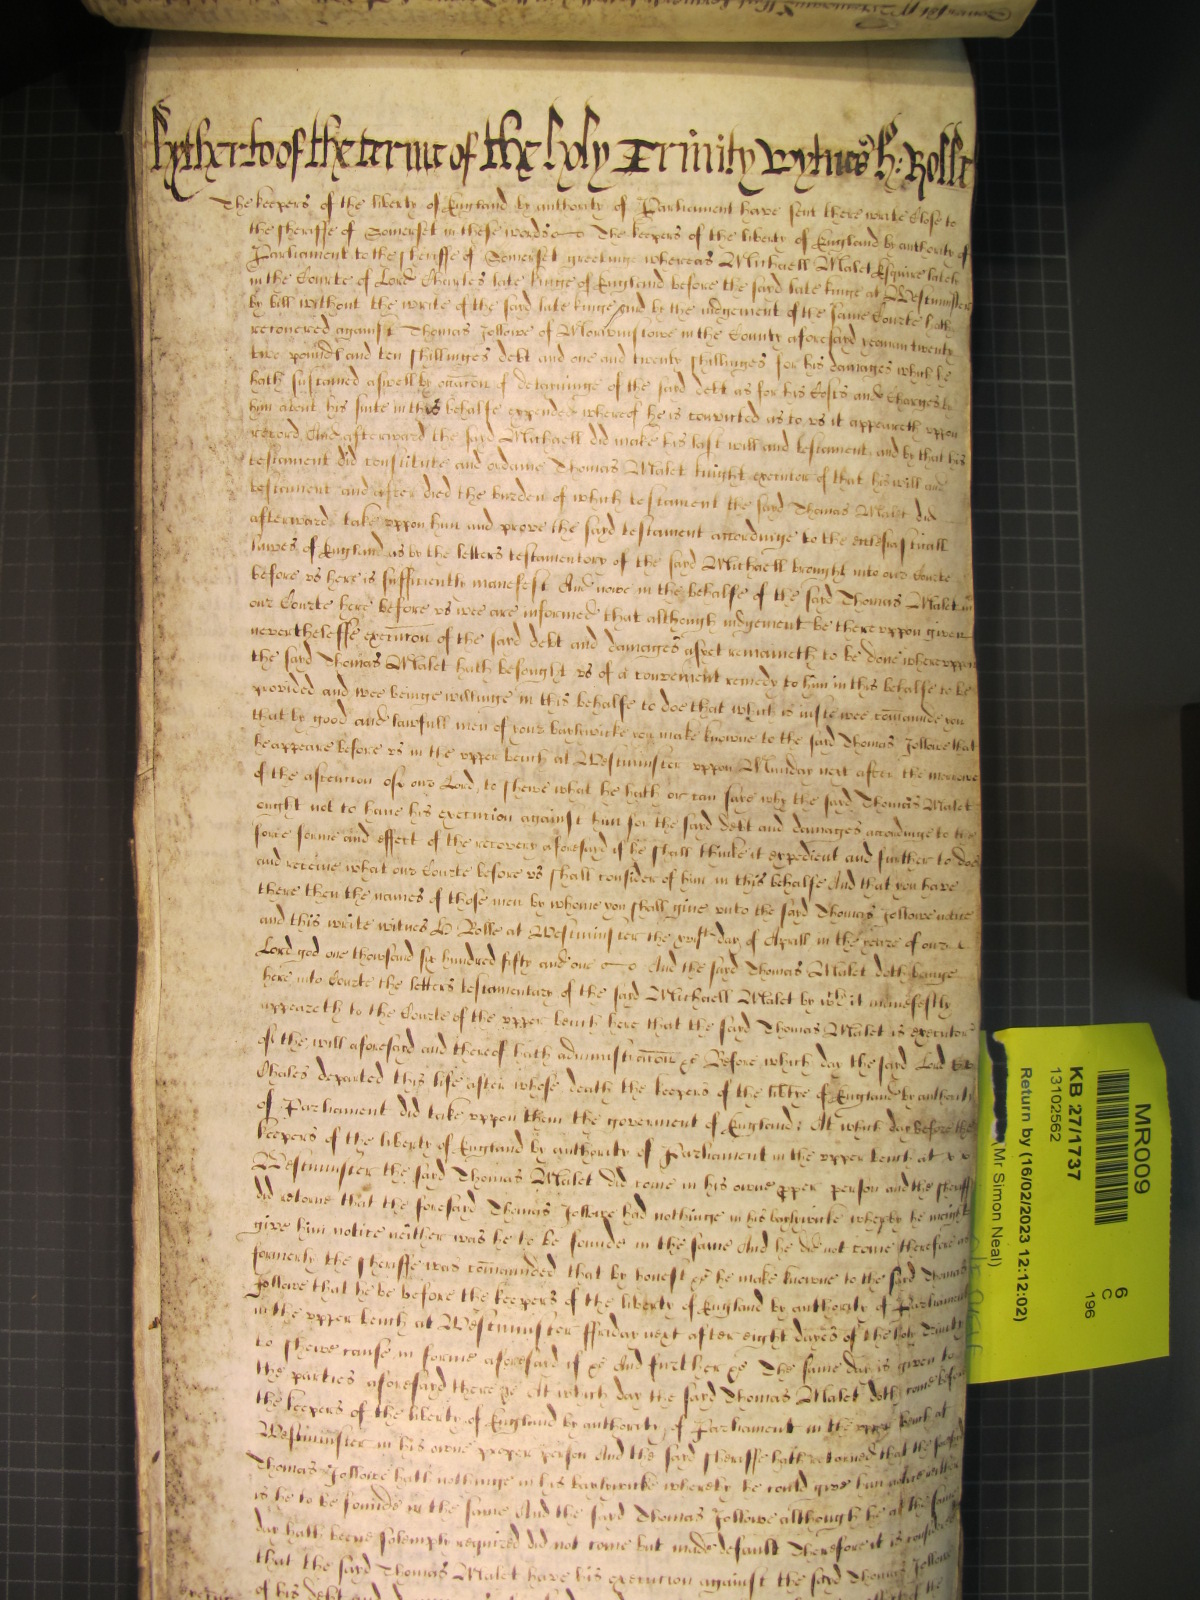 hytherto of the terme of the holy Trinity wytnes H: Rolle
The keepers of the liberty of England by authority of Parliament have sent there write Close to
the sheriffe of Somerset in these words The keepers of the liberty of England by authority of
Parliament to the sheriffe of Somerset greetinge whereas Michaell Malet Esquire lately
in the Courte of Lord Charles late kinge of England before the sayd late kinge at Westminster
by bill wythout the write of the sayd late kinge and by the iudgement of the same Courte hath
recovered against Thomas Jollowe of in the County aforesayd yeoman twenty
two pounds and ten shillinges debt and one and twenty shillinges for his damages which he
hath sustained aswell by occacon of detayninge of the sayd debt as for his Costs and Charges by
him about his suite in this behalfe expended whereof he is convicted as to us it appeareth uppon
record And afterward the sayd Michaell did make his last will and testament and by that his
testament did constitute and ordaine Thomas Malet knight executor of that his will and
testament and after died the burden of which testament the sayd Thomas Malet did
afterwards take uppon him and prove the sayd testament accordinge to the ecclesiasticall
lawes of England as by the letters testamentory of the sayd Michaell brought into our Courte
before us here is sufficiently manefest And nowe in the behalfe of the said Thomas Malet in
our Courte here before us wee are informed that although iudgement be thereuppon given
neverthelesse execucon of the sayd debt and damages as yet remaineth to be done whereuppon
the sayd Thomas Malet hath besought us of a convenient remedy to him in this behalfe to be
provided and wee beinge willinge in this behalfe to doe that which is iuste wee comaunde you
that by good and lawfull men of your baylywicke you make knowne to the said Thomas Jollowe that
he appeare before us in the upper bench at Westminster uppon Munday next after the morrowe
of the ascention of our Lord, to shewe what he hath or can saye why the sayd Thomas Malet
ought not to have his execution against him for the sayd debt and damages accordinge to the
force forme and effect of the recovery aforesayd if he shall thinke it expedient and further to doe
and receive what our Courte before us shall consider of him in this behalfe And that you have
there then the names of those men by whome you shall give unto the sayd Thomas Jollowe notice
and this write witnes H: Rolle at Westminster the day of Aprill in the yeare of our
Lord god one thowsand six hundred fifty and one And the sayd Thomas Malet doth bringe
here into Courte the letters testamentary of the sayd Michaell Malet by wch it manefestly
appeareth to the Courte of the upper bench here that the sayd Thomas Malet is executor
of the will aforesayd and thereof hath administracon &c Before which day the sayd Lord
Chales departed this life after whose death the keepers of the libtye of England by authority
of Parliament did take uppon them the goverment of England; At which day before the
keepers of the liberty of England by authority of Parliament in the upper bench at
Westminster the sayd Thomas Malet did come in his owne pper person and the sheriff
did retorne that the foresayd Thomas Jollowe had nothinge in his baylywicke whereby he might
give him notice neither was he to be founde in the same And he did not come therefore as
formerly the sheriffe was comaunded that by honest &c he make knowne to the sayd Thomas
Jollowe that he be before the keepers of the liberty of England by authority of Parliament
in the upper bench at Westminster ffriday next after eight dayes of the holy Trinity
to shewe cause in forme aforesaid if &c And further &c The same day is given to
the parties aforesayd there &c At which day the sayd Thomas Malet doth come before
the keepers of the liberty of England by authority of Parliament in the upper bench at
Westminster in his owne proper person And the sayd sheriffe hath retorned that the
Thomas Jollowe hath nothinge in his baylywicke whereby he could give him notice neither
is he to be founde in the same And the sayd Thomas Jollowe although he at the same
day hath beene solemply required did not come but made default Therefore it is considered
that the sayd Thomas Malet have his execution against the sayd Thomas Jollowe
of his debt and
MR009
6
C
196
KB 27/1737
13102562
Return by (16/02/2023 12:12:02)
(Mr Simon Neal)